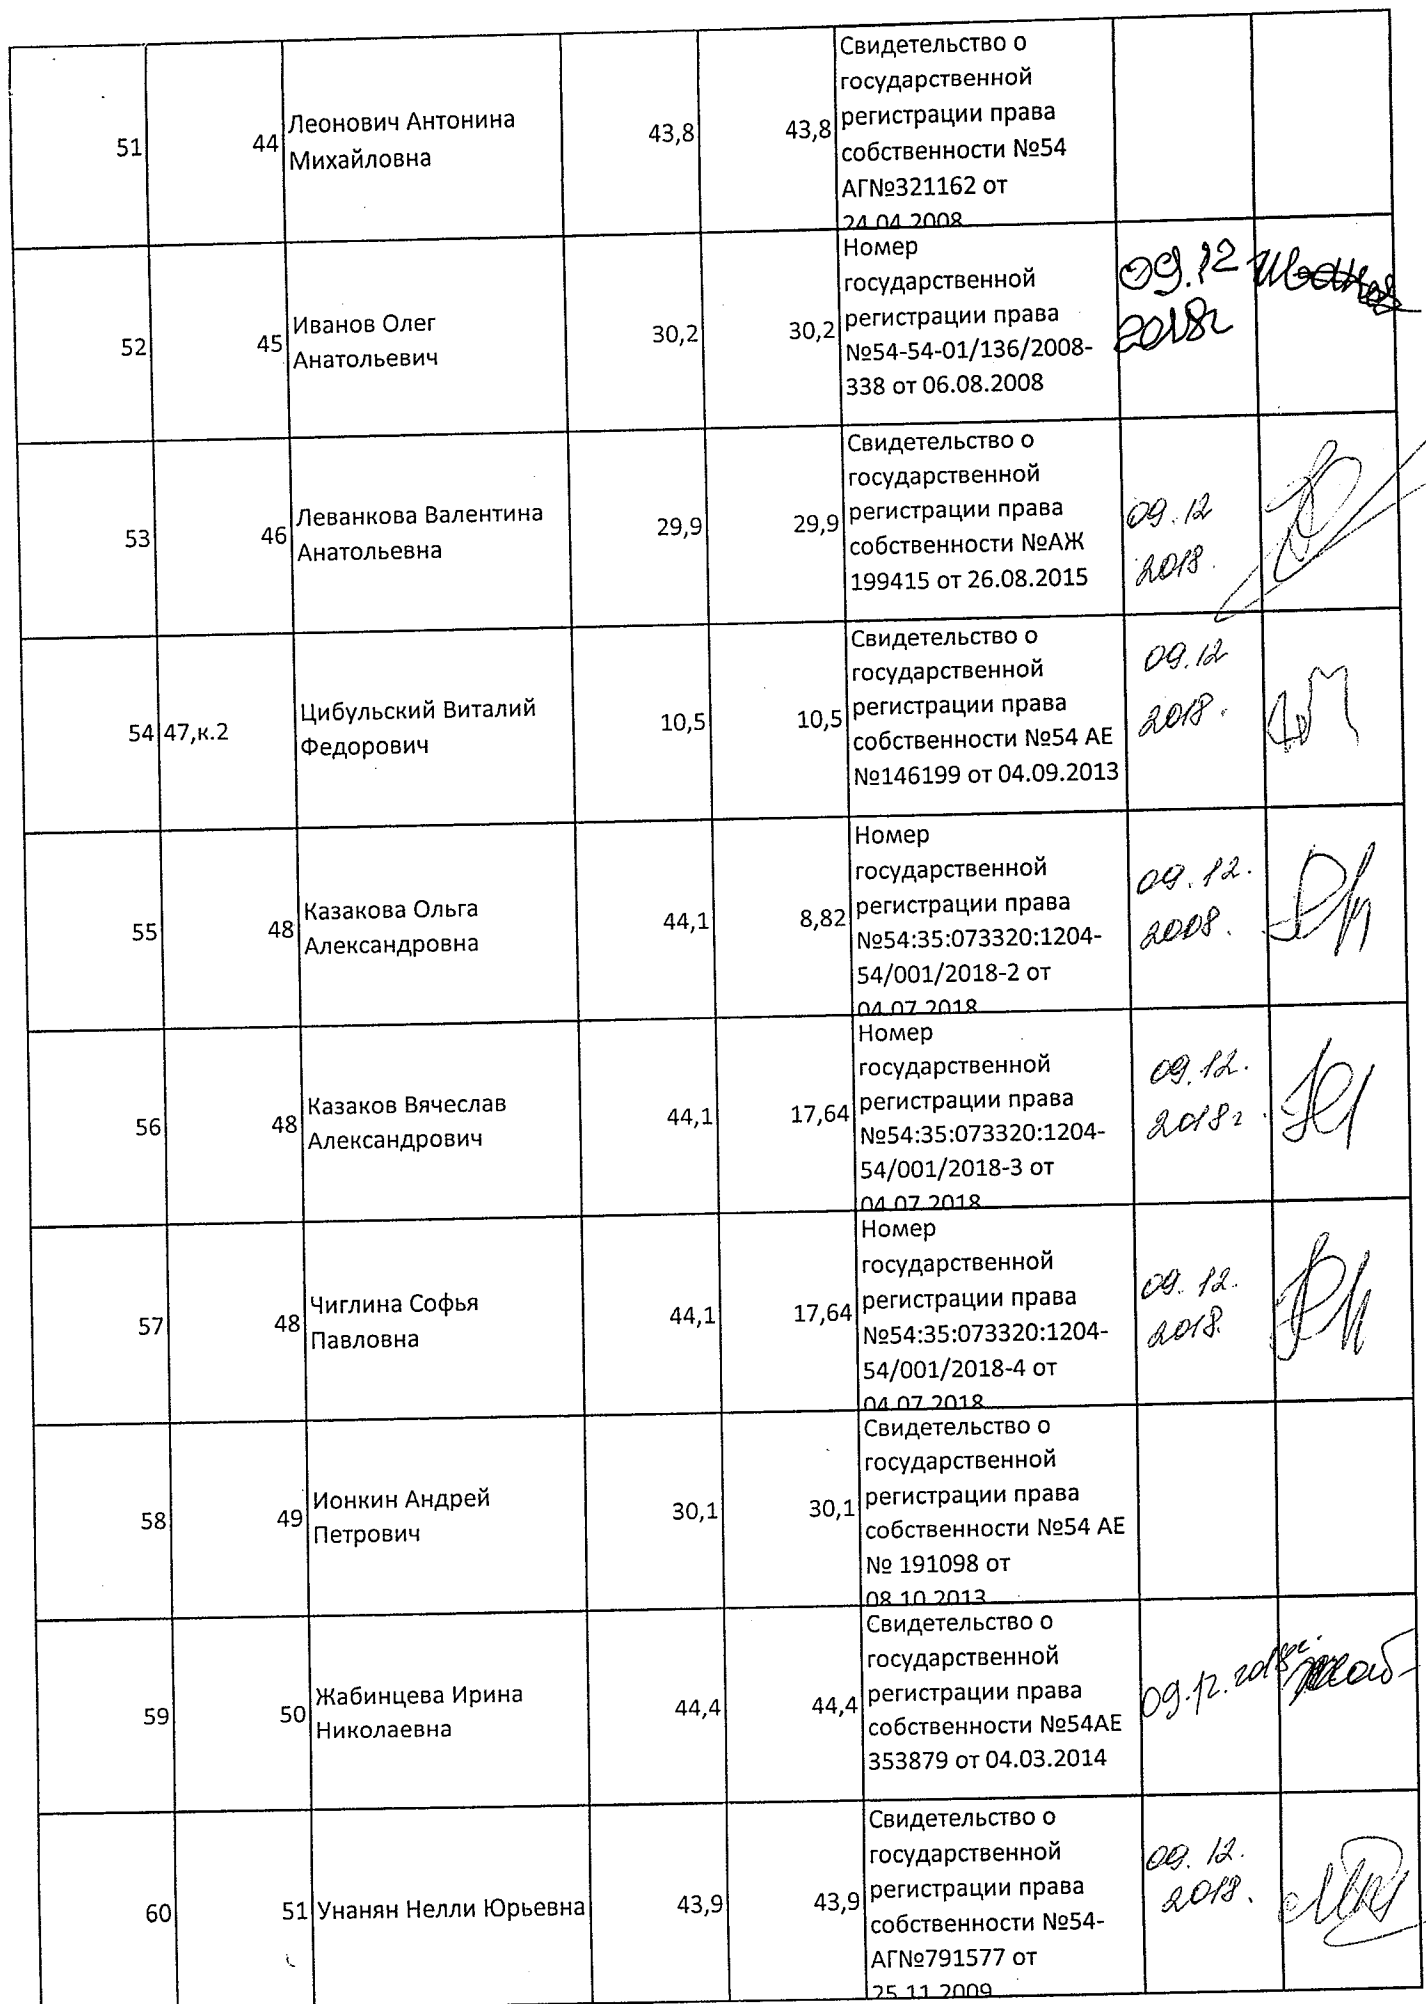 51
44
Леонович Антонина
Михайловна
43,8
43,8
Свидетельство о
государственной
регистрации права
собственности №54
АГ№321162 от
24.04.2008
52
45
Иванов Олег
Анатольевич
30,2
30,2
Номер
государственной
регистрации права
№54-54-01/136/2008-
338 от 06.08.2008
09.12
2018г
53
46
Леванкова Валентина
Анатольевна
29,9
29,9
Свидетельство о
государственной
регистрации права
собственности №АЖ
199415 от 26.08.2015
09.12
2018.
54
47,к.2
Цибульский Виталий
Федорович
10,5
10,5
Свидетельство о
государственной
регистрации права
собственности №54 АЕ
№146199 от 04.09.2013
09.12
2018.
55
48
Казакова Ольга
Александровна
44,1
8,82
Номер
государственной
регистрации права
№54:35:073320:1204-
54/001/2018-2 от
04.07.2018
09.12.
2008.
56
48
Казаков Вячеслав
Александрович
44,1
17,64
Номер
государственной
регистрации права
№54:35:073320:1204-
54/001/2018-3 от
04.07.2018
09.12.
2018г.
57
48
Чиглина Софья
Павловна
44,1
17,64
Номер
государственной
регистрации права
№54:35:073320:1204-
54/001/2018-4 от
04.07.2018
09.12.
2018.
58
49
Ионкин Андрей
Петрович
30,1
30,1
Свидетельство о
государственной
регистрации права
собственности №54 АЕ
№ 191098 от
08.10.2013
59
50
Жабинцева Ирина
Николаевна
44,4
44,4
Свидетельство о
государственной
регистрации права
собственности №54АЕ
353879 от 04.03.2014
09.12.2018г.
60
51
Унанян Нелли Юрьевна
43,9
43,9
Свидетельство о
государственной
регистрации права
собственности №54-
АГ№791577 от
25.11.2009
09.12.
2018.